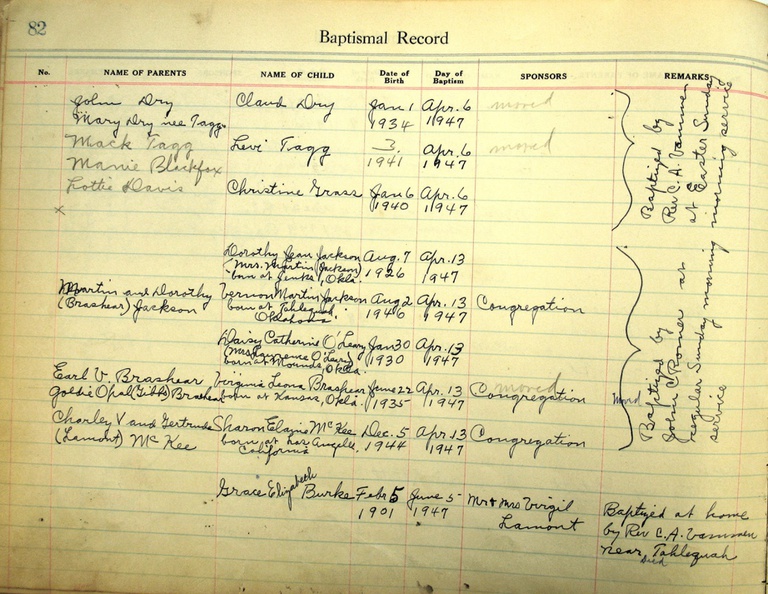 82
Baptismal Record
No. NAME OF PARENTS NAME OF CHILD Date of Birth Day of Baptism SPONSORS REMARKS
John Dry Claud Dry Jan 1 Apr. 6 moved
Mary Dry nee Tagg 1934 1947
Mack Tagg Levi Tagg 3, Apr. 6 moved
Manie Blackfox 1941 1947
Lottie Davis Christine Grass Jan 6 Apr. 6
x 1940 1947
Baptized by
Rev C. A. Vammen
at Easter Sunday
morning service
Dorothy Jean Jackson Aug. 7 Apr. 13
(Mrs. Martin Jackson) 1926 1947
born at Jenks, Okla.
Martin and Dorothy Vernon Martin Jackson Aug 2 Apr. 13 Congregation
(Brashear) Jackson born at Tahlequah, 1946 1947
Oklahoma.
Daisy Catherine O'Leary Jan 30 Apr. 13
(Mrs Lawrence O'Leary) 1930 1947
born at Mounds, Okla.
Earl V. Brashear Virginia Leona Brashear June 22 Apr. 13 Congregation moved
Goldie Opal (Gibbs) Brashear born at Kansas, Okla. 1935 1947
Charley V and Gertrude Sharon Elaine McKee Dec. 5 Apr. 13 Congregation
(Lamont) McKee born at Los Angeles 1944 1947
California
Baptized by
John C Romer at
regular Sunday morning
service
Grace Elizabeth Burke Febr 5 June 5 Mr & Mrs Virgil
1901 1947 Lamont
Baptized at home
by Rev C. A. Vammen
near Tahlequah
Died